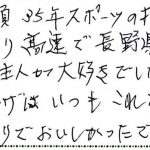 頃 35年スポーツの
り高速で長野県
主人が大好きでい
げはいつもこれ
りでおいしかったで